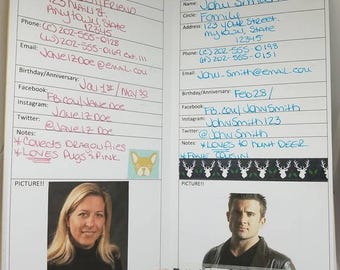 Friend
123 Main St.
Any Town, State
12345
Phone: (C) 202-555-0128
(W) 202-555-0169 ext. 111
Email:
JaneIzDoe@email.com
Birthday/Anniversary: Jan 1st / May 30
Facebook:
FB.com/JaneDoe
Instagram:
JaneIzDoe
Twitter:
@JaneIzDoe
Notes:
*Collects Dragonflies
*LOVES Pugs & Pink
PICTURE!!
Name: John Smith
Circle: Family
Address: 123 Your Street.
My Town, State
12345
Phone: (C) 202-555-0198
(W) 202-555-0151
Email:
John.Smith@email.com
Birthday/Anniversary: Feb 28 /
Facebook:
FB.com/JohnSmith
Instagram:
JohnSmith123
Twitter:
@JohnSmith
Notes:
*LOVES to Hunt DEER
Cousin
PICTURE!!